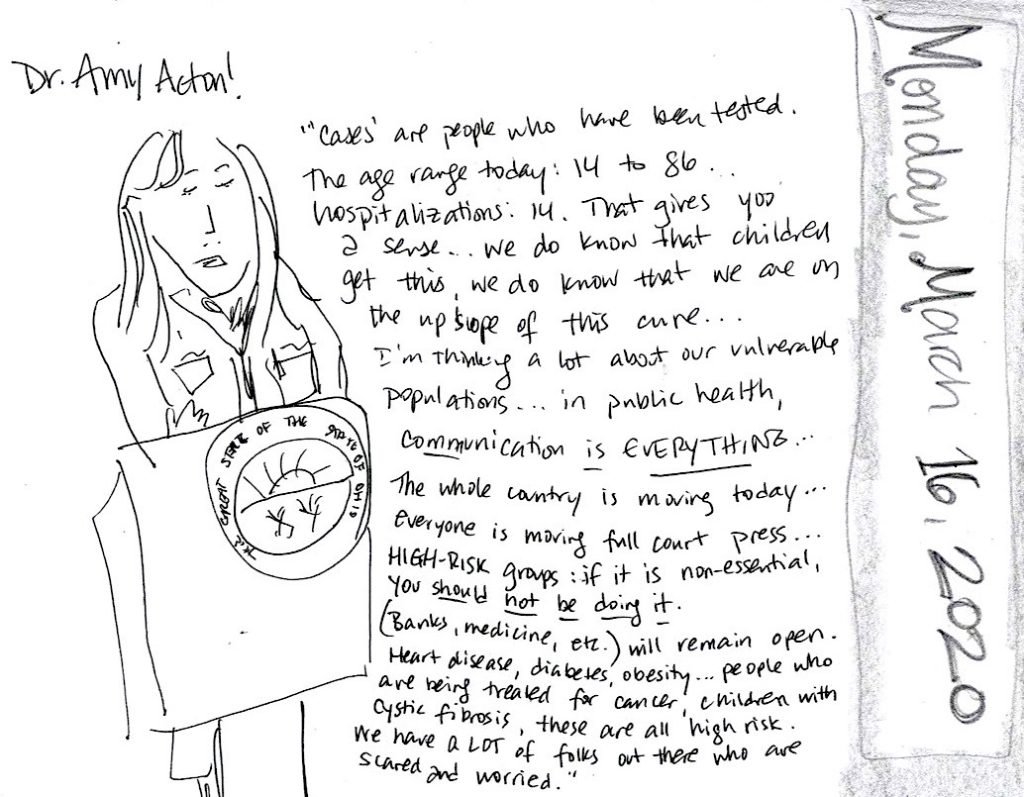 Dr. Amy Acton!
"'Cases' are people who have been tested.
The age range today: 14 to 86...
hospitalizations: 14. That gives you
a sense... we do know that children
get this, we do know that we are on
the upslope of this curve...
I'm thinking a lot about our vulnerable
populations... in public health,
communication is EVERYTHING...
The whole country is moving today...
Everyone is moving full court press...
HIGH-RISK groups: if it is non-essential,
you should not be doing it.
(Banks, medicine, etc.) will remain open.
Heart disease, diabetes, obesity... people who
are being treated for cancer, children with
cystic fibrosis, these are all high risk.
We have a LOT of folks out there who are
scared and worried."
THE GREAT SEAL OF THE STATE OF OHIO
Monday, March 16, 2020